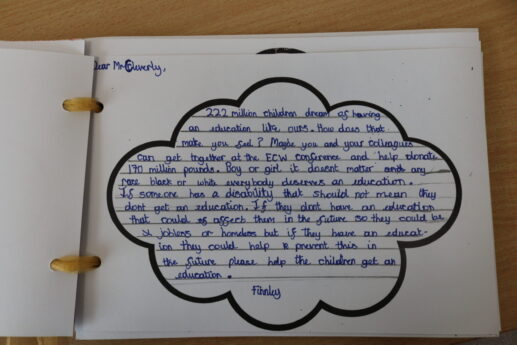 Dear Mr Cleverly,
222 million children dream of having
an education like ours. How does that
make you feel? Maybe you and your colleagues
can get together at the ECW conference and help donate
170 million pounds. Boy or girl it doesnt matter any
race black or white everybody deserves an education.
If someone has a disability that should not mean they
dont get an education. If they dont have an education
that could affect them in the future so they could be
jobless or homeless but if they have an educat-
ion they could help prevent this in
the future please help the children get an
education.
Finnley